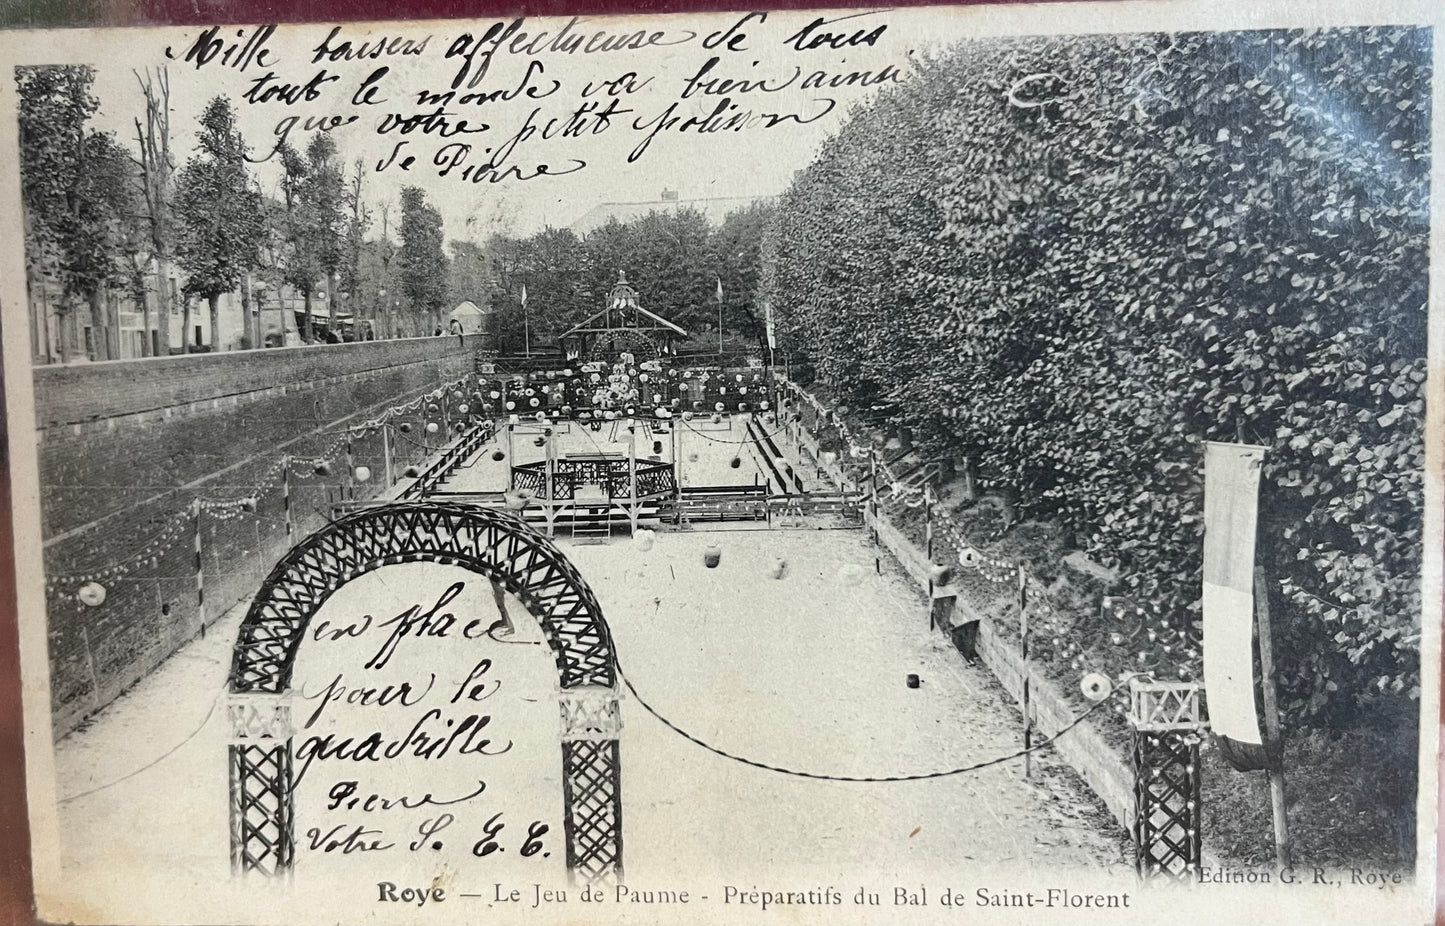 Mille baisers affectueuse de tous
tout le monde va bien ainsi
que votre petit polisson
de Pierre
en place
pour le
quadrille
Pierre
Votre S. E. E.
Edition G. R., Roye
Roye — Le Jeu de Paume - Préparatifs du Bal de Saint-Florent